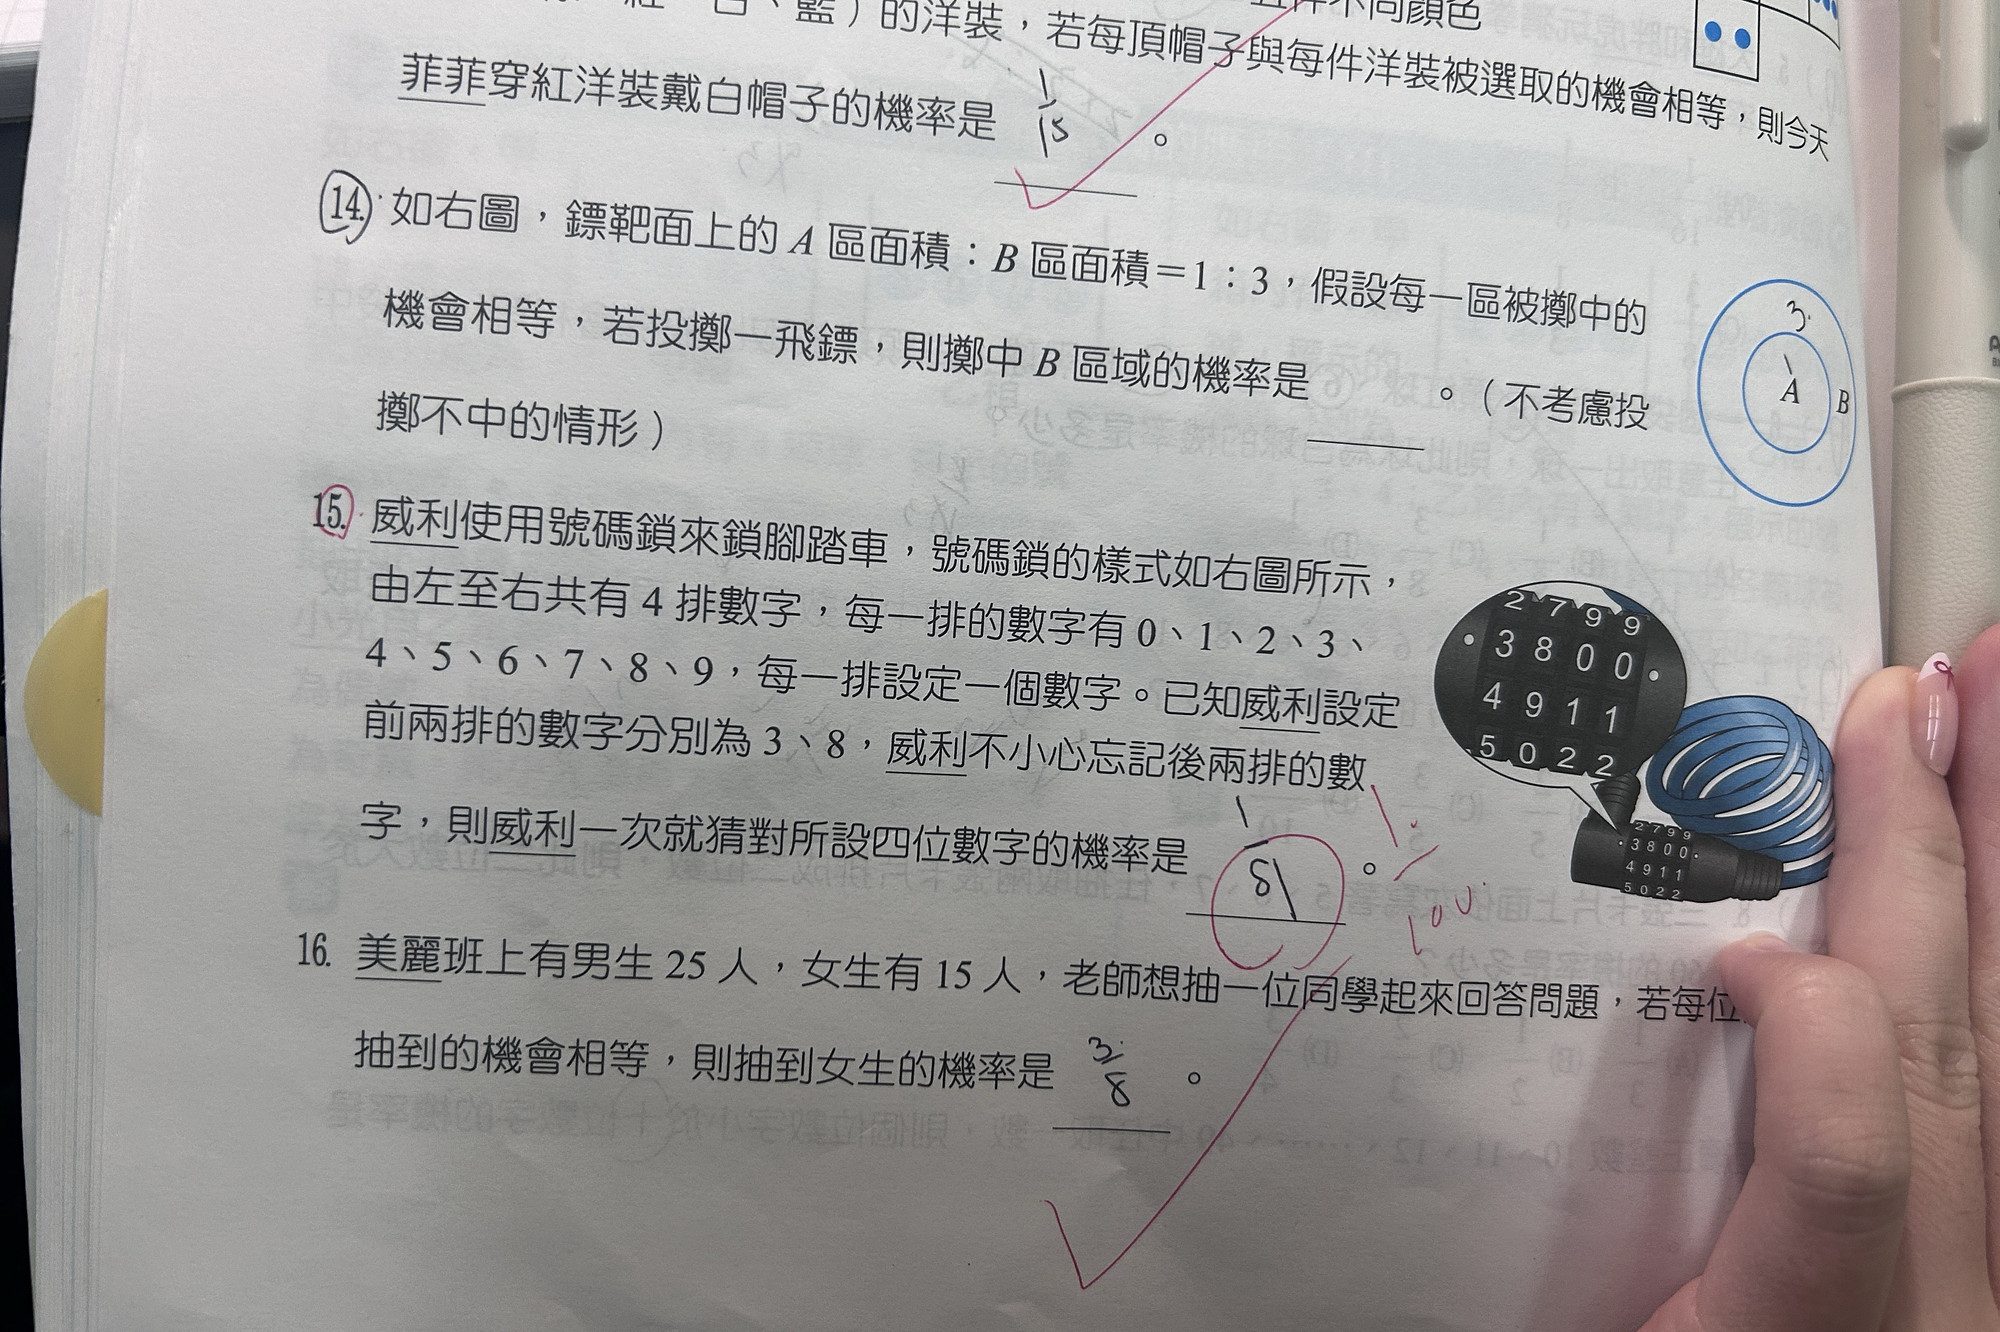 紅、白、藍）的洋裝，若每頂帽子與每件洋裝被選取的機會相等，則今天
菲菲穿紅洋裝戴白帽子的機率是 1/15 。
14. 如右圖，鏢靶面上的 A 區面積：B 區面積＝1：3，假設每一區被擲中的
機會相等，若投擲一飛鏢，則擲中 B 區域的機率是＿＿。（不考慮投
擲不中的情形）
3
1
A
B
15. 威利使用號碼鎖來鎖腳踏車，號碼鎖的樣式如右圖所示，
由左至右共有 4 排數字，每一排的數字有 0、1、2、3、
4、5、6、7、8、9，每一排設定一個數字。已知威利設定
前兩排的數字分別為 3、8，威利不小心忘記後兩排的數
字，則威利一次就猜對所設四位數字的機率是 1/81 。 1/100
2 7 9 9
3 8 0 0
4 9 1 1
5 0 2 2
2 7 9 9
3 8 0 0
4 9 1 1
5 0 2 2
16. 美麗班上有男生 25 人，女生有 15 人，老師想抽一位同學起來回答問題，若每位
抽到的機會相等，則抽到女生的機率是 3/8 。